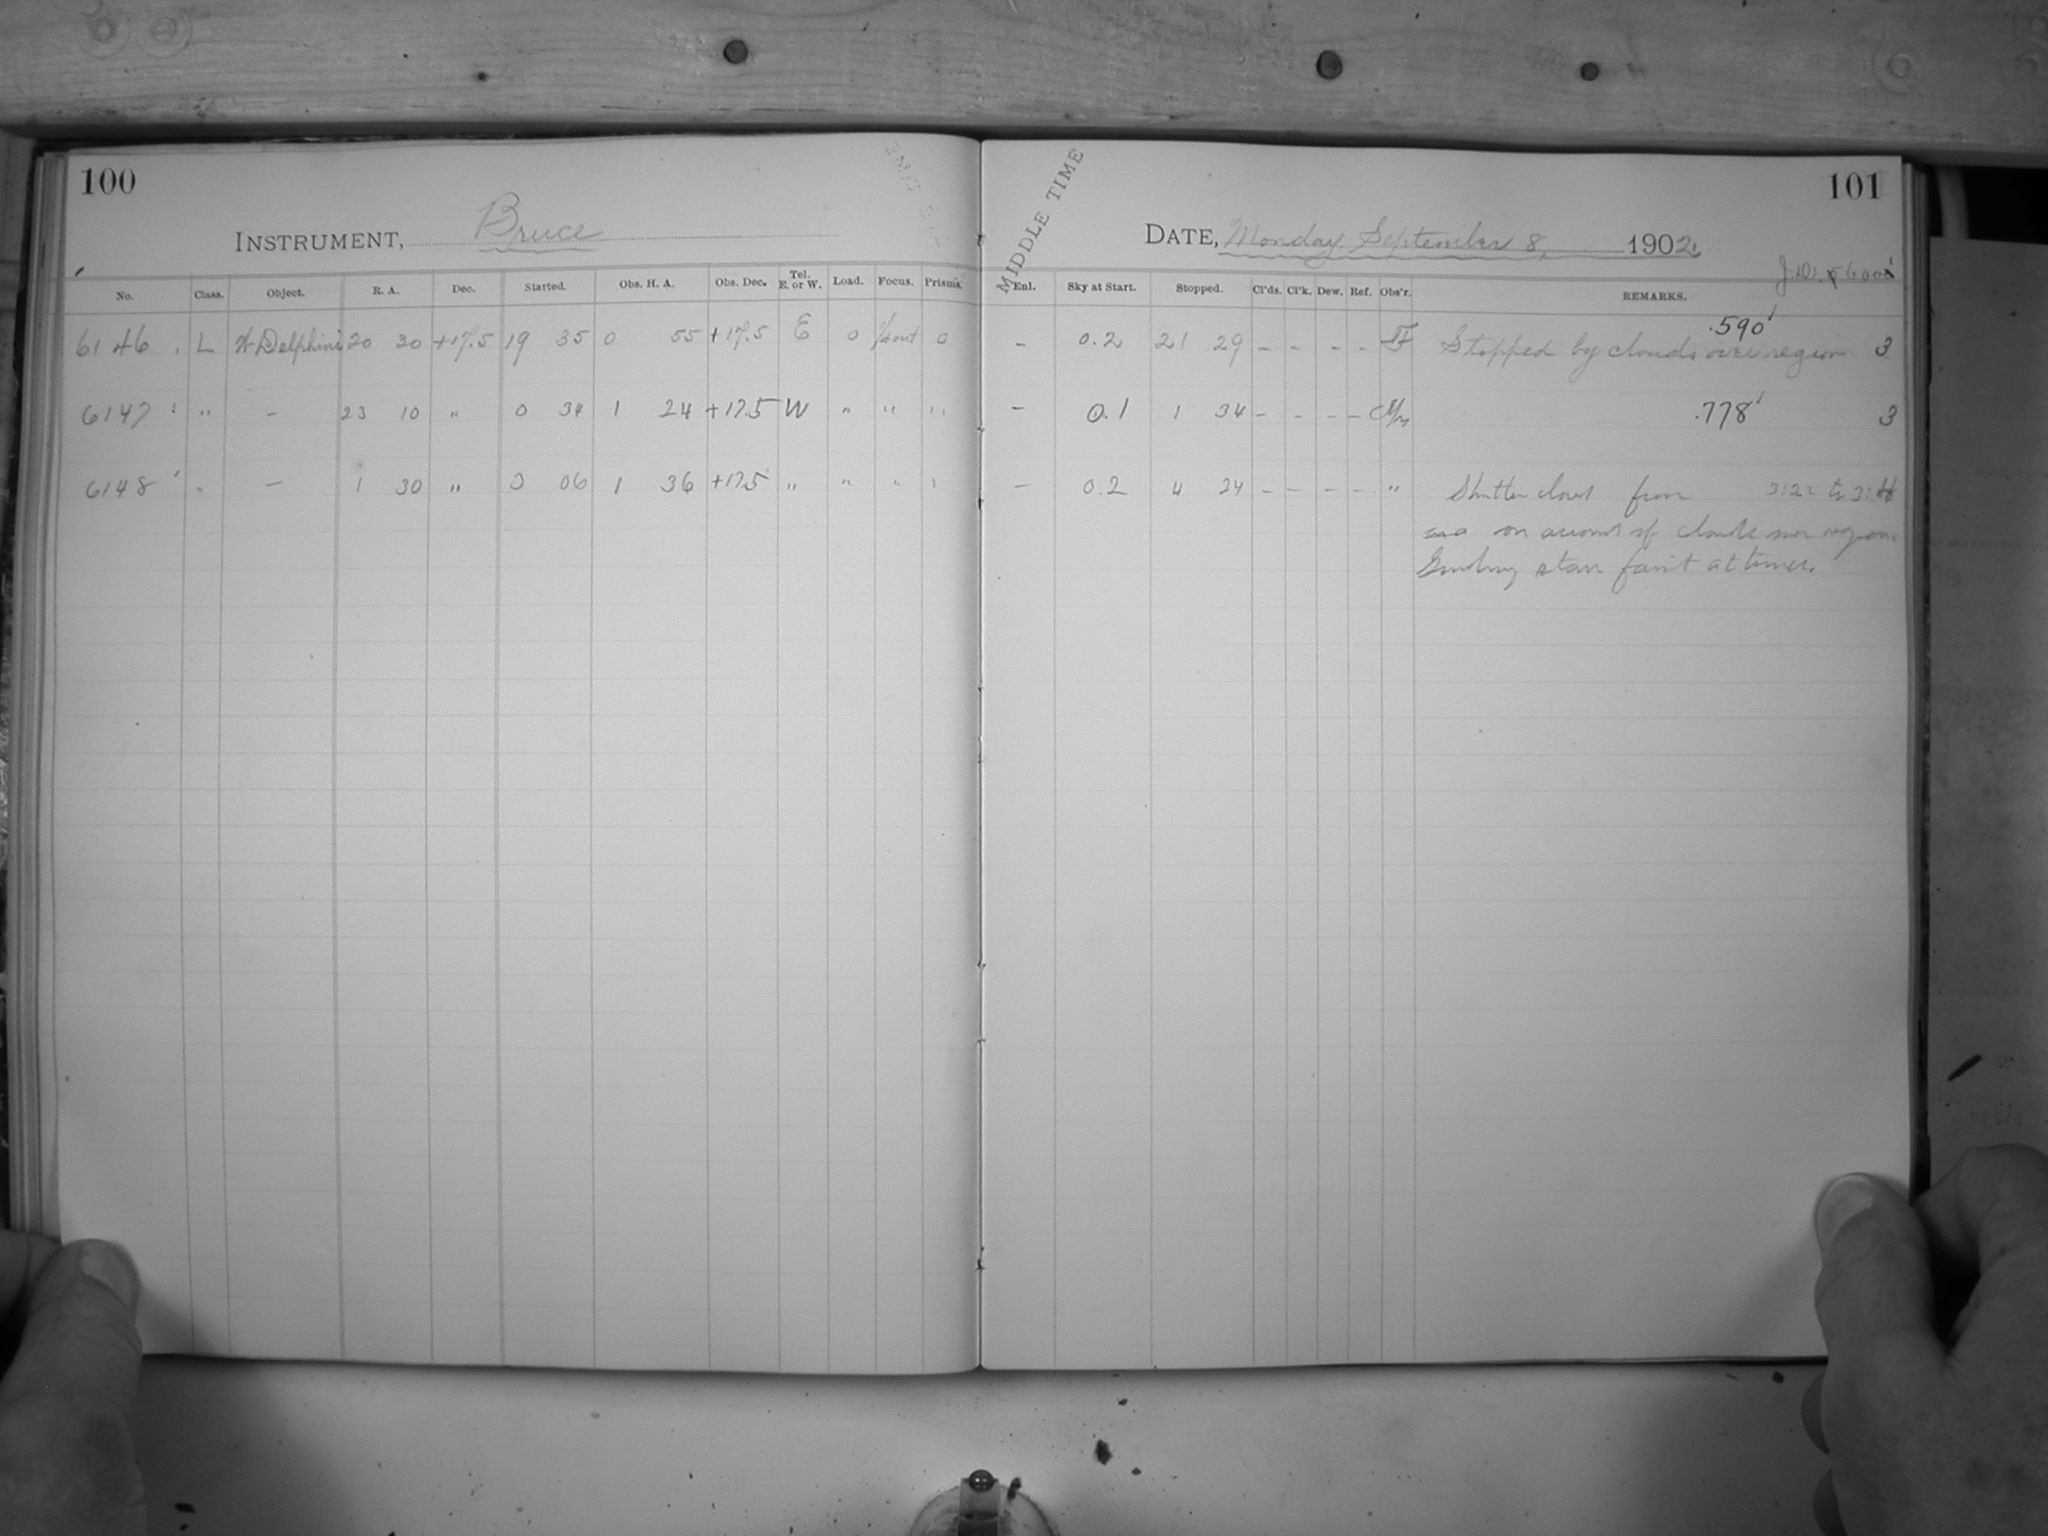 100
INSTRUMENT, Bruce
No. Class. Object. R. A. Dec. Started. Obs. H. A. Obs. Dec. Tel. E. or W. Load. Focus. Prisms.
6146 L Delphini 20 30 +17.5 19 35 0 55 +17.5 E 0 1/4 out 0
6147 " - 23 10 " 0 34 1 24 +17.5 W " " "
6148 " - 1 30 " 3 06 1 36 +17.5 " " " "
MIDDLE TIME
101
DATE, Monday September 8, 1902.
J.D.
Enl. Sky at Start. Stopped. Cl'ds. Cl'k. Dew. Ref. Obs'r. REMARKS.
.590
- 0.2 21 29 - - - - F Stopped by clouds over region 3
- 0.1 1 34 - - - - .778 3
- 0.2 4 24 - - - - " Shutter closed from 3:22 to
on account of clouds over region.
Guiding star faint at times.